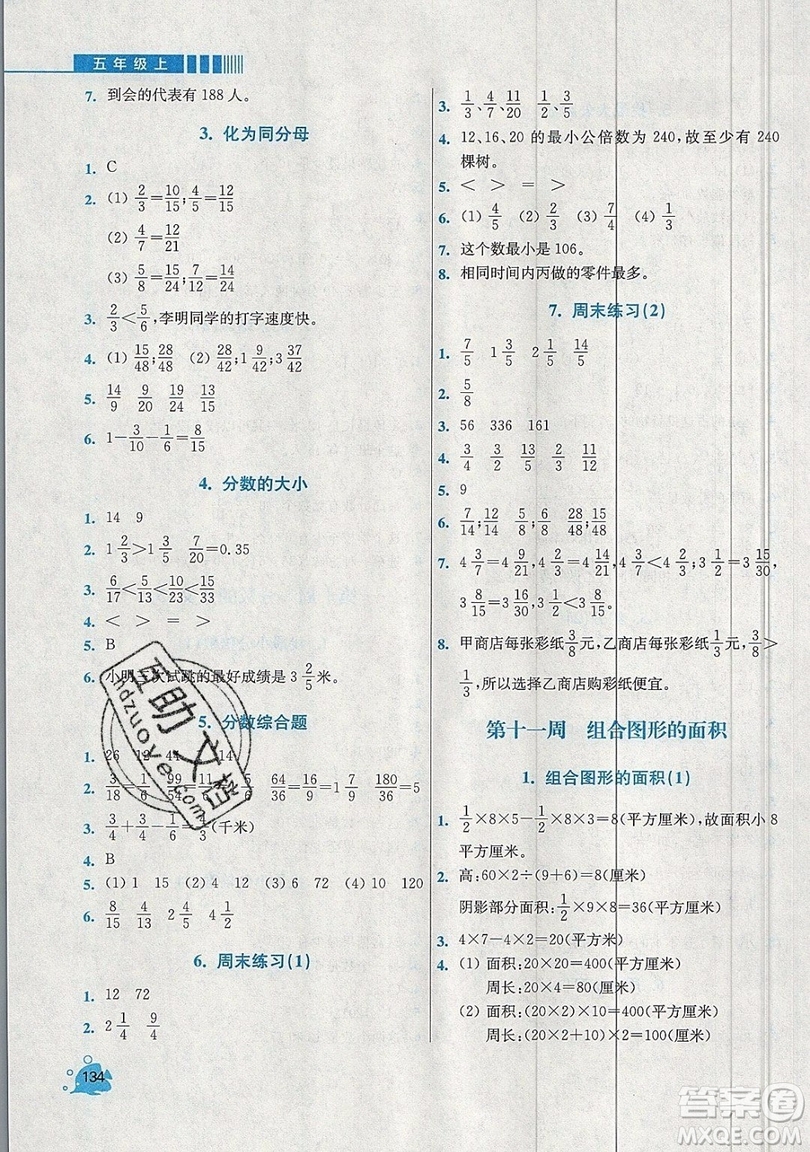 五年级上
7. 到会的代表有 188 人。
3. 化为同分母
1. C
2. (1) 2/3=10/15;4/5=12/15
(2) 4/7=12/21
(3) 5/8=15/24;7/12=14/24
3. 2/3<5/6,李明同学的打字速度快。
4. (1) 15/48;28/48 (2) 14/42;1 9/42;3 37/42
5. 14/9 9/20 19/24 13/15
6. 1-3/10-1/6=8/15
4. 分数的大小
1. 14 9
2. 1 2/3>1 3/5>7/20=0.35
3. 6/17<5/13<10/23<15/29
4. < > > <
5. B
6. 小明三次试跳的最好成绩是 3 2/5 米。
5. 分数综合题
1. 26 12 44 14
2. 3/18=1/6 99/66=1 1/2 11/99=1/9 64/36=1 7/9 180/36=5
3. 3/4+3/4-1/6=4/3(千米)
4. B
5. (1) 1 15 (2) 4 24 (3) 6 72 (4) 10 120
6. 8/15 4/15 2 1/4 9/40
6. 周末练习(1)
1. 12 72
2. 2 1/4 9/4
134
3. 1/3、4/7、11/20 1/2、3/5
4. 12、16、20 的最小公倍数为 240,故至少有 240
棵树。
5. < > = >
6. (1) 4/5 (2) 2/3 (3) 7/4 (4) 1/3
7. 这个数最小是 106。
8. 相同时间内丙做的零件最多。
7. 周末练习(2)
1. 7/5 5/8 1 2/5 14/5
2. 5/8
3. 56 336 161
4. 3/4 3/4 2/3 4/3
5. 9
6. 7/14;2/14 5/8;6/8 28/48;15/48
7. 4 3/7=4 9/21,4 2/3=4 14/21,4 3/7<4 2/3;3 1/2=3 15/30,
3 8/15=3 16/30,3 1/2<3 8/15。
8. 甲商店每张彩纸 3/8 元,乙商店每张彩纸 2/6 元,3/8>
2/6,所以选择乙商店购彩纸便宜。
第十一周 组合图形的面积
1. 组合图形的面积(1)
1. 1/2×8×5-1/2×8×3=8(平方厘米),故面积小 8
平方厘米。
2. 高:60×2÷(9+6)=8(厘米)
阴影部分面积:1/2×9×8=36(平方厘米)
3. 4×7-4×2=20(平方米)
4. (1) 面积:20×20=400(平方厘米)
周长:20×4=80(厘米)
(2) 面积:(20×2)×10=400(平方厘米)
周长:(20×2+10)×2=100(厘米)
互助文档
hdzuoye.com
答案圈
MXQE.COM